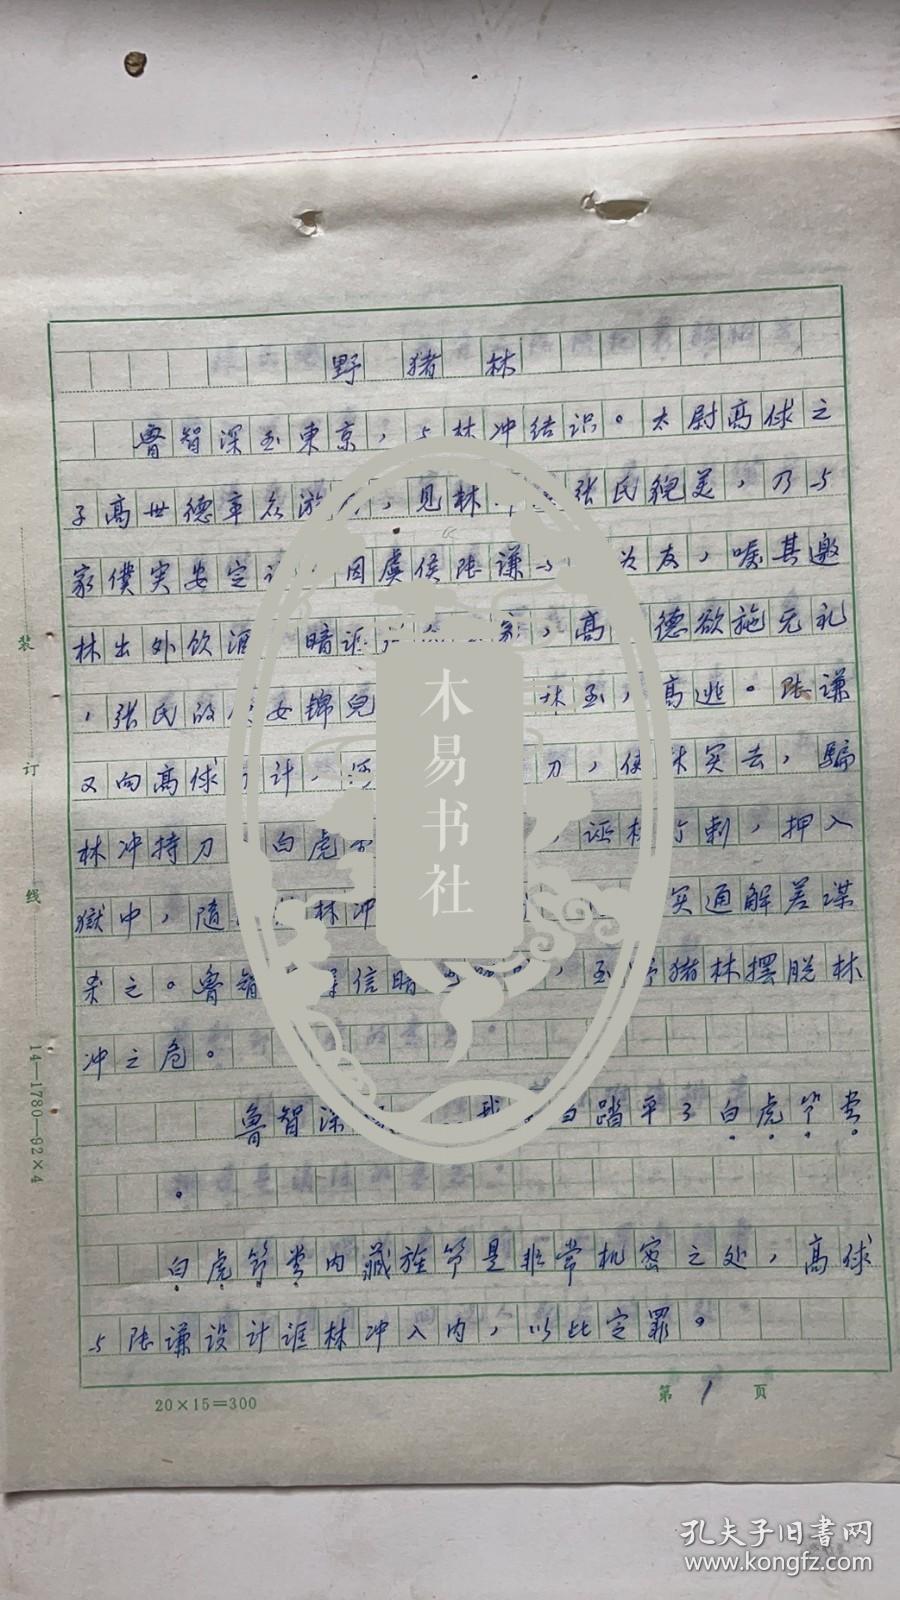 野猪林
鲁智深至東京，与林冲结识。太尉高俅之
子高世德率众游，见林张氏貌美，乃与
家僕实安定因虞侯陆谦与为友，嘱其邀
林出外饮酒暗诓家，高德欲施无礼
，张氏的女锦兒林至，高逃。陆谦
又向高俅计，刀，使林买去，騙
林冲持刀白虎，诬村行刺，押入
獄中，随林冲买通解差谋
杀之。鲁智信暗，至野猪林摆脱林
冲之危。
鲁智深踏平了白虎节堂
。
白虎节堂内藏旌节是非常机密之处，高俅
与陆谦设计诓林冲入内，以此定罪。
装
订
线
14—1780—92×4
20×15=300
第1页
木易书社
孔夫子旧书网
www.kongfz.com